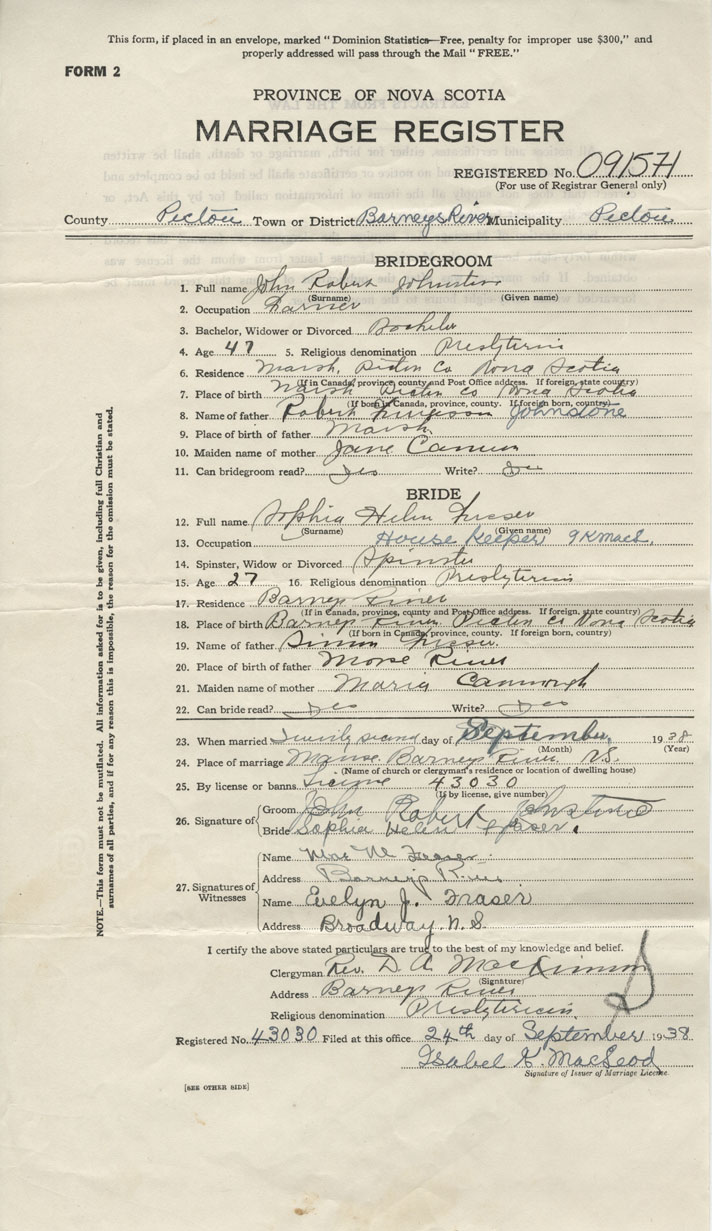 This form, if placed in an envelope, marked "Dominion Statistics—Free, penalty for improper use $300," and
properly addressed will pass through the Mail "FREE."
FORM 2
PROVINCE OF NOVA SCOTIA
MARRIAGE REGISTER
REGISTERED No. 091571
(For use of Registrar General only)
County Pictou Town or District Barneys River Municipality Pictou
BRIDEGROOM
1. Full name John Robert Johnstone
(Surname) (Given name)
2. Occupation Farmer
3. Bachelor, Widower or Divorced Bachelor
4. Age 47 5. Religious denomination Presbyterian
6. Residence Marsh, Pictou Co Nova Scotia
(If in Canada, province, county and Post Office address. If foreign, state country)
7. Place of birth Marsh Pictou Co Nova Scotia
(If born in Canada, province, county. If foreign born, country)
8. Name of father Robert Johnstone
9. Place of father Marsh
10. Maiden name of mother Jane
11. Can bridegroom read? Yes Write? Yes
BRIDE
12. Full name Sophia Helen Fraser
(Surname) (Given name)
13. Occupation House Keeper
14. Spinster, Widow or Divorced Spinster
15. Age 27 16. Religious denomination Presbyterian
17. Residence Barneys River
(If in Canada, province, county and Post Office address. If foreign, state country)
18. Place of birth Barneys River Pictou Co Nova Scotia
(If born in Canada, province, county. If foreign born, country)
19. Name of father Simon Fraser
20. Place of birth of father River
21. Maiden name of mother Maria
22. Can bride read? Yes Write? Yes
23. When married Twenty second day of September 1938
(Month) (Year)
24. Place of marriage Manse Barneys River N.S.
(Name of church or clergyman's residence or location of dwelling house)
25. By license or banns License 43030
(If by license, give number)
26. Signature of Groom John Robert Johnstone
Bride Sophia Helen Fraser.
27. Signatures of Witnesses
Name Fraser
Address Barneys River
Name Evelyn J. Fraser
Address Broadway. N.S.
I certify the above stated particulars are true to the best of my knowledge and belief.
Clergyman Rev. D. A. MacKinnon
(Signature)
Address Barneys River
Religious denomination Presbyterian
Registered No. 43030 Filed at this office 24th day of September 1938
Isabel MacLeod
Signature of Issuer of Marriage License.
[SEE OTHER SIDE]
NOTE.—This form must not be mutilated. All information asked for is to be given, including full Christian and
surnames of all parties, and if for any reason this is impossible, the reason for the omission must be stated.